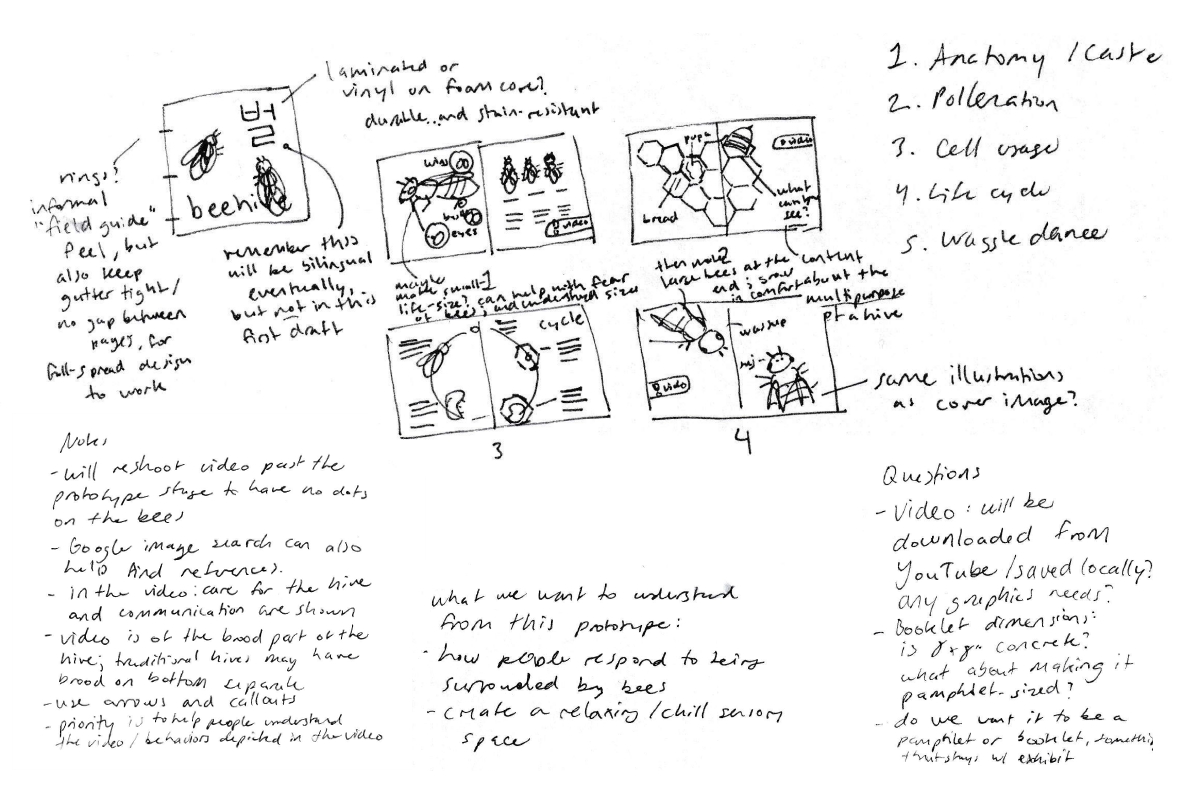 laminated or
vinyl on foam core?
durable..and stain-resistant
벌
beehive
rings?
informal
"field guide"
feel, but
also keep
gutter tight/
no gap between
pages, for
full-spread design
to work
remember this
will be bilingual
eventually,
but not in this
first draft
eyes
video
maybe
make small-
life-size? can help with fear
of bees, and understand size
pupa
bread
video
what
can you
see?
large bees at the
end; grow
in comfort
content
about the
multipurpose
of a hive
cycle
3
video
4
same illustrations
as cover image?
1. Anatomy / Caste
2. Pollenation
3. Cell usage
4. Life cycle
5. Waggle dance
Notes
- will reshoot video past the
prototype stage to have no dots
on the bees
- Google image search can also
help find references.
- in the video: care for the hive
and communication are shown
- video is of the brood part of the
hive; traditional hives may have
brood on bottom separate
- use arrows and callouts
- priority is to help people understand
the video / behaviors depicted in the video
what we want to understand
from this prototype:
- how people respond to being
surrounded by bees
- create a relaxing / chill sensory
space
Questions
- Video: will be
downloaded from
YouTube / saved locally?
any graphics needs?
- Booklet dimensions:
is 8x8" concrete?
what about making it
pamphlet-sized?
- do we want it to be a
pamphlet or booklet, something
that stays w/ exhibit